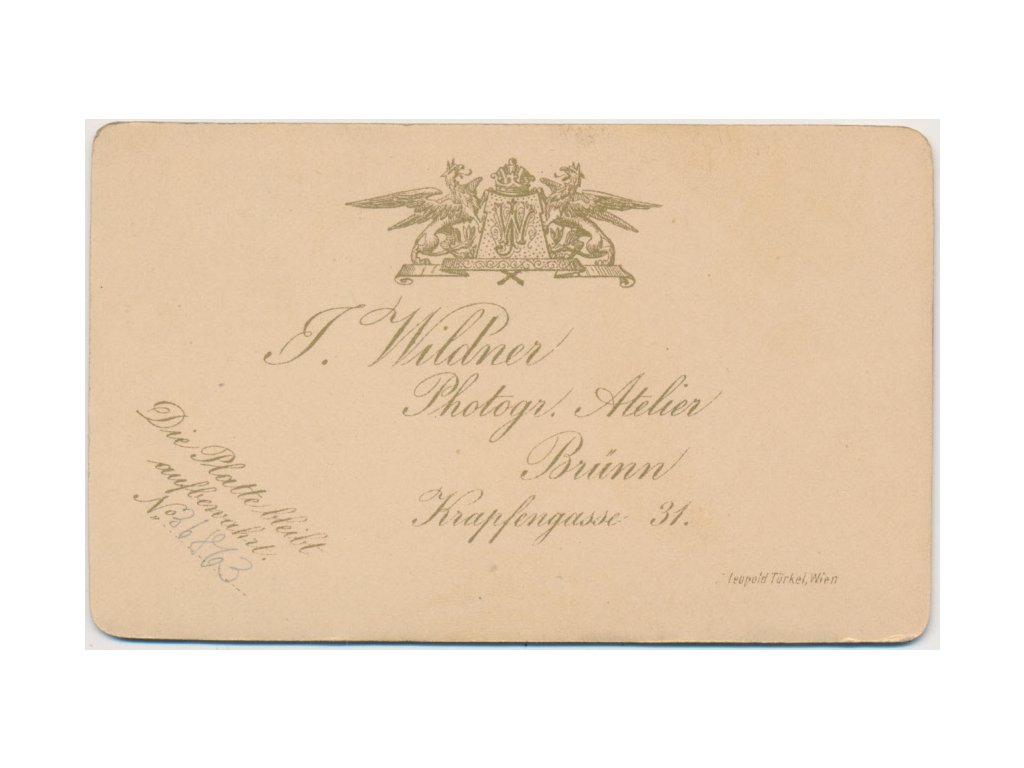 JW
J. Wildner
Photogr. Atelier
Brünn
Krapfengasse 31.
Die Platte bleibt
aufbewahrt.
No. 36863
Leopold Türkel, Wien